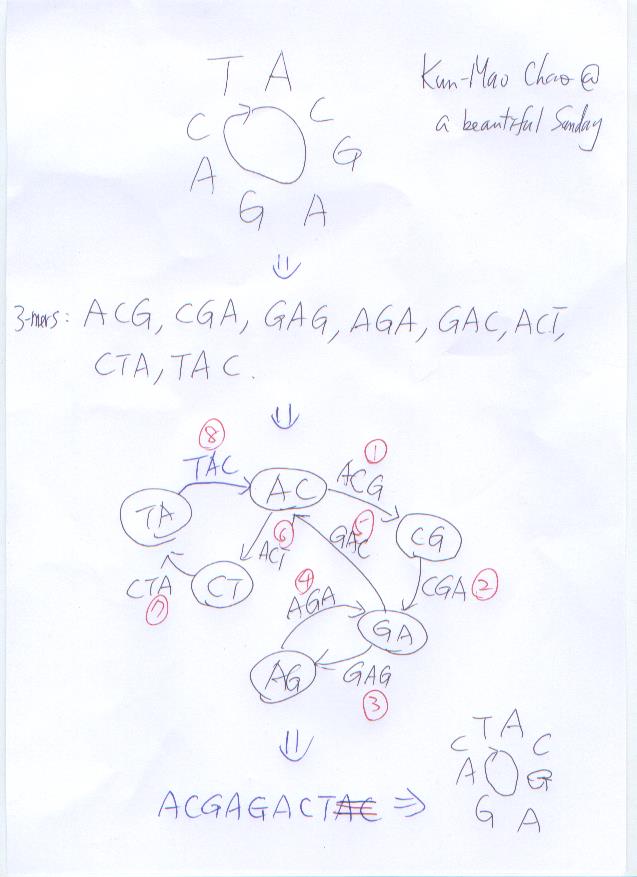 T A
Kun-Mao Chao @
a beautiful Sunday
C C
A G
G A
⇓
3-mers: ACG, CGA, GAG, AGA, GAC, ACT,
CTA, TAC.
⇓
8
TAC
1
ACG
AC
TA
6
ACT
5
GAC
CG
CTA
7
CT
4
AGA
CGA 2
GA
AG
GAG
3
⇓
ACGAGACTAC ⇒
T A
C C
A G
G A